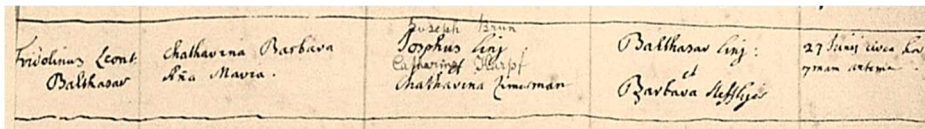 Fridolinus Leont:
Balthasar
Chatharina Barbara
Aña Maria.
Joseph Brun
Josephus Linj
Catharina Karpf
et
Chatharina Zimerman
Balthasar Linj:
et
Barbara
27 Junij circa